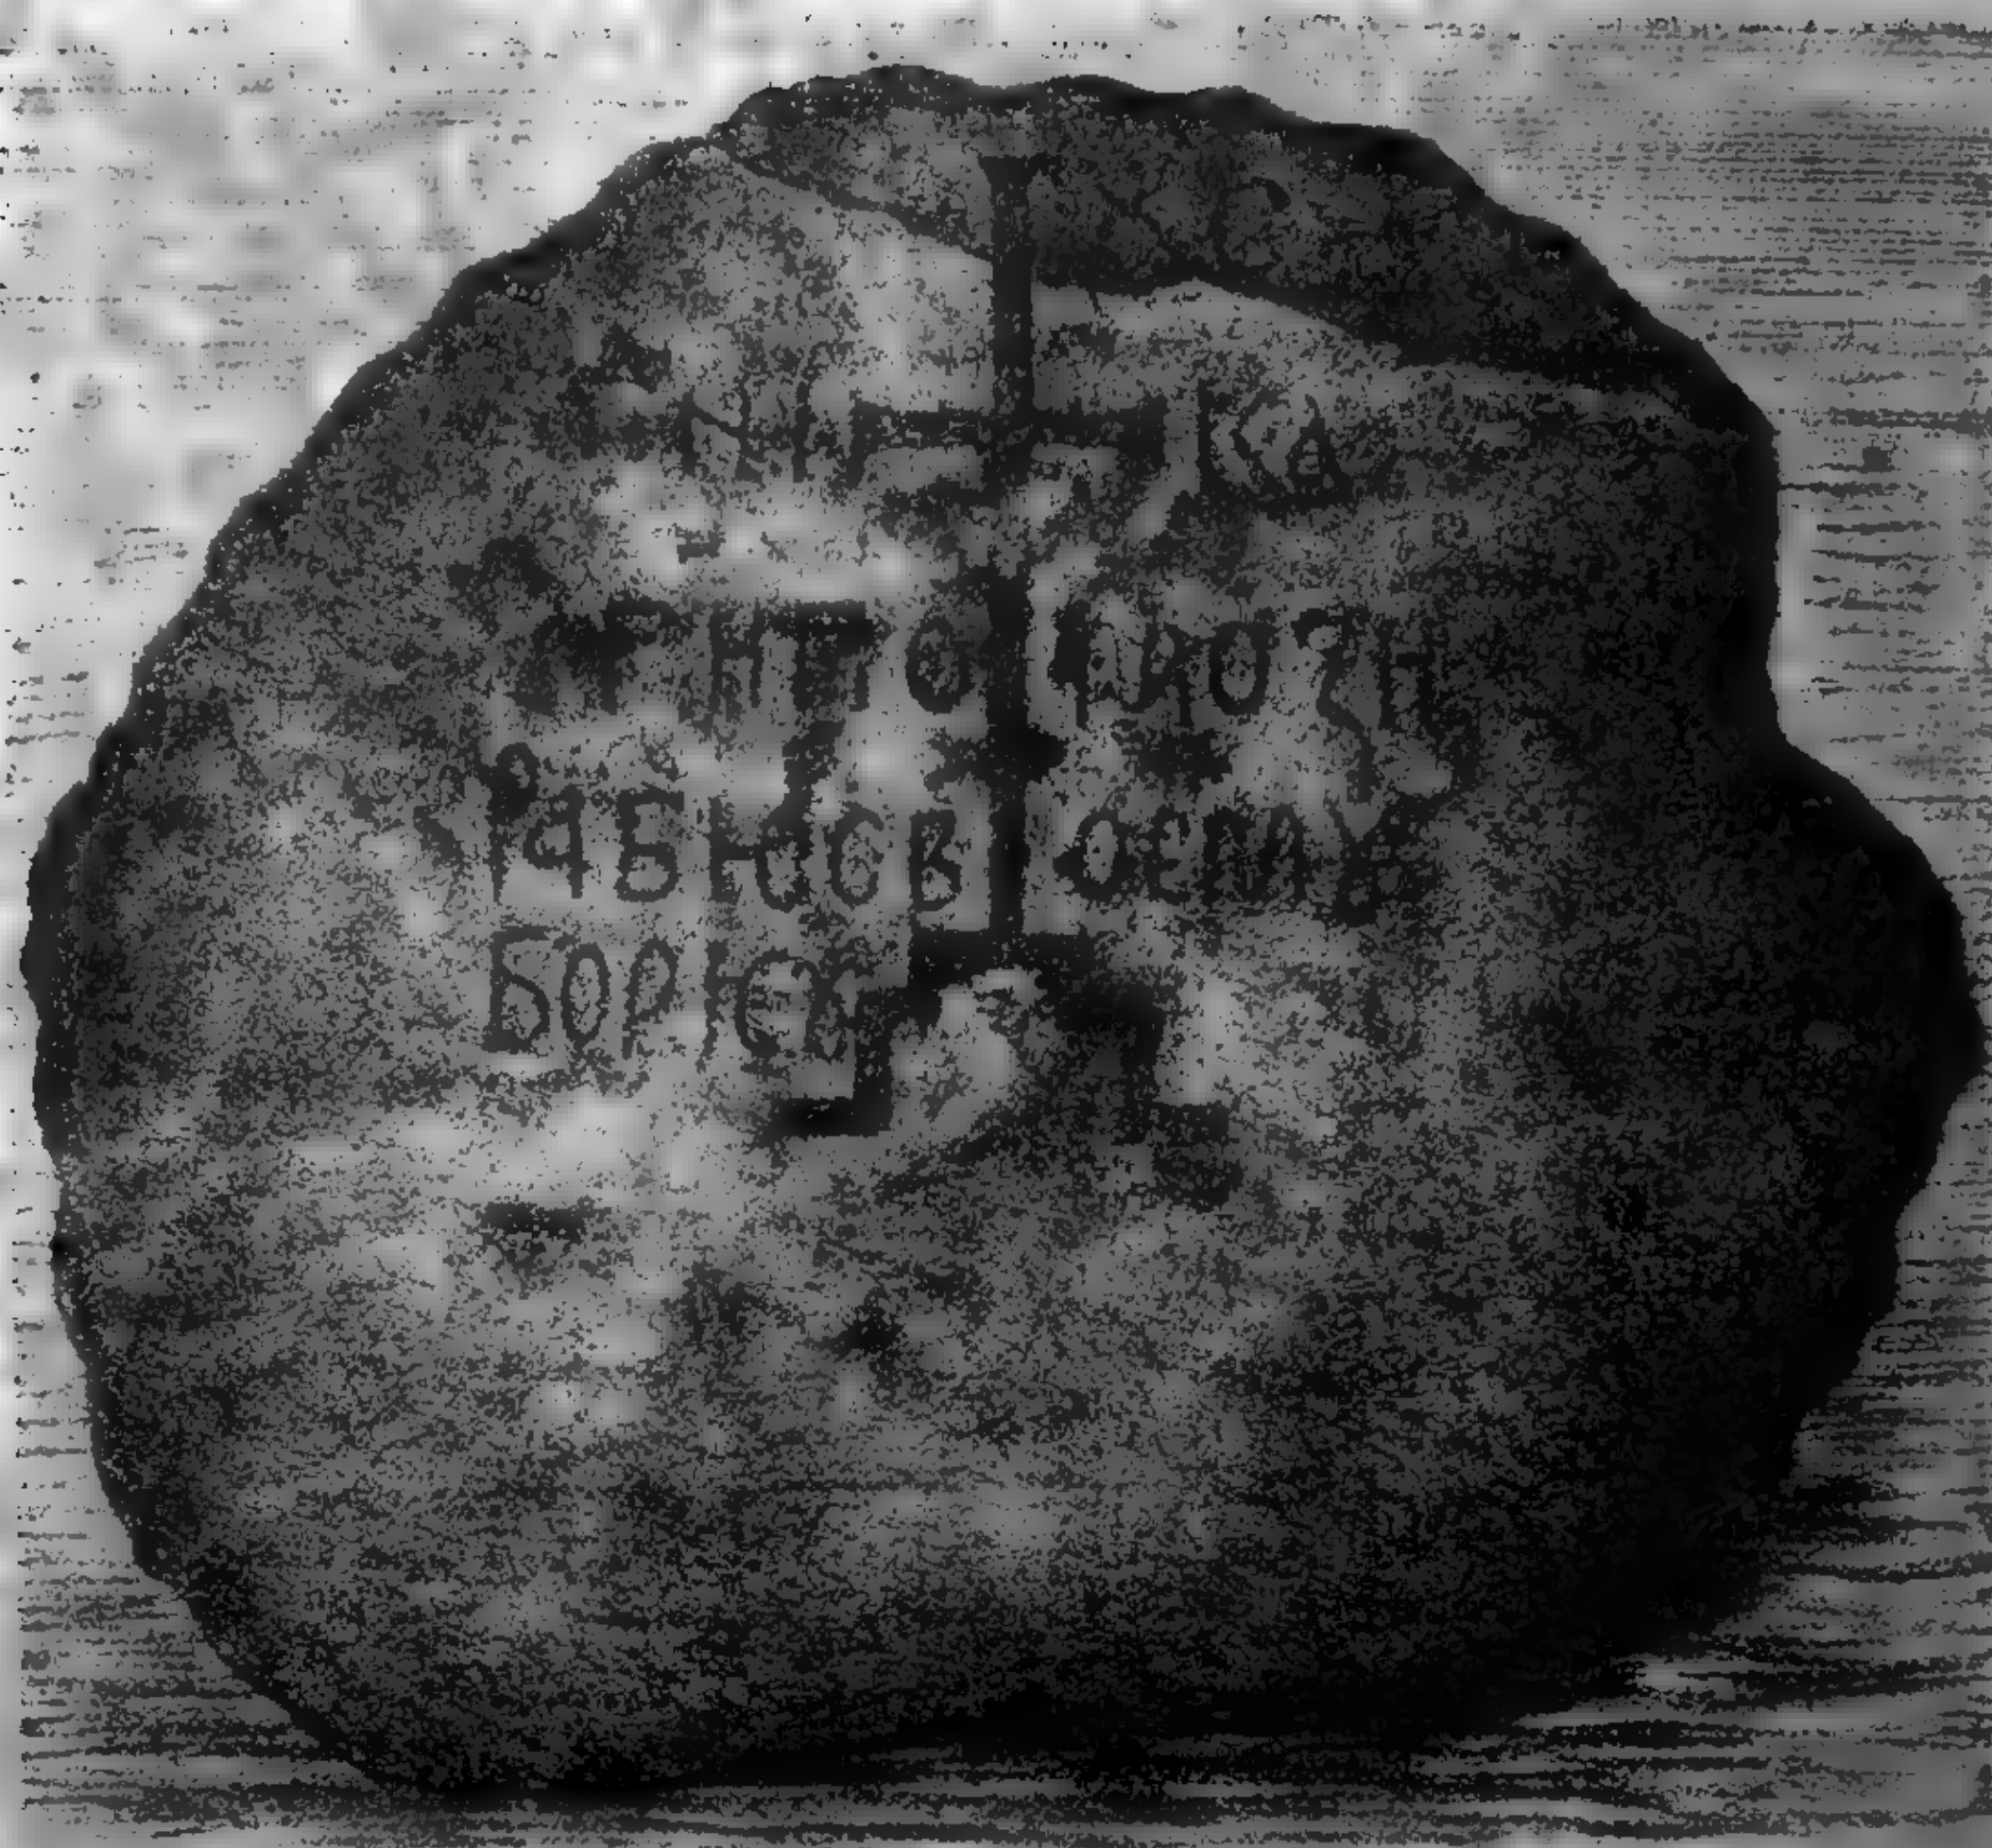 НИ КА
ГИ ПО МОЗИ
РАБУ СВ ОЕМУ
БОРИСУ